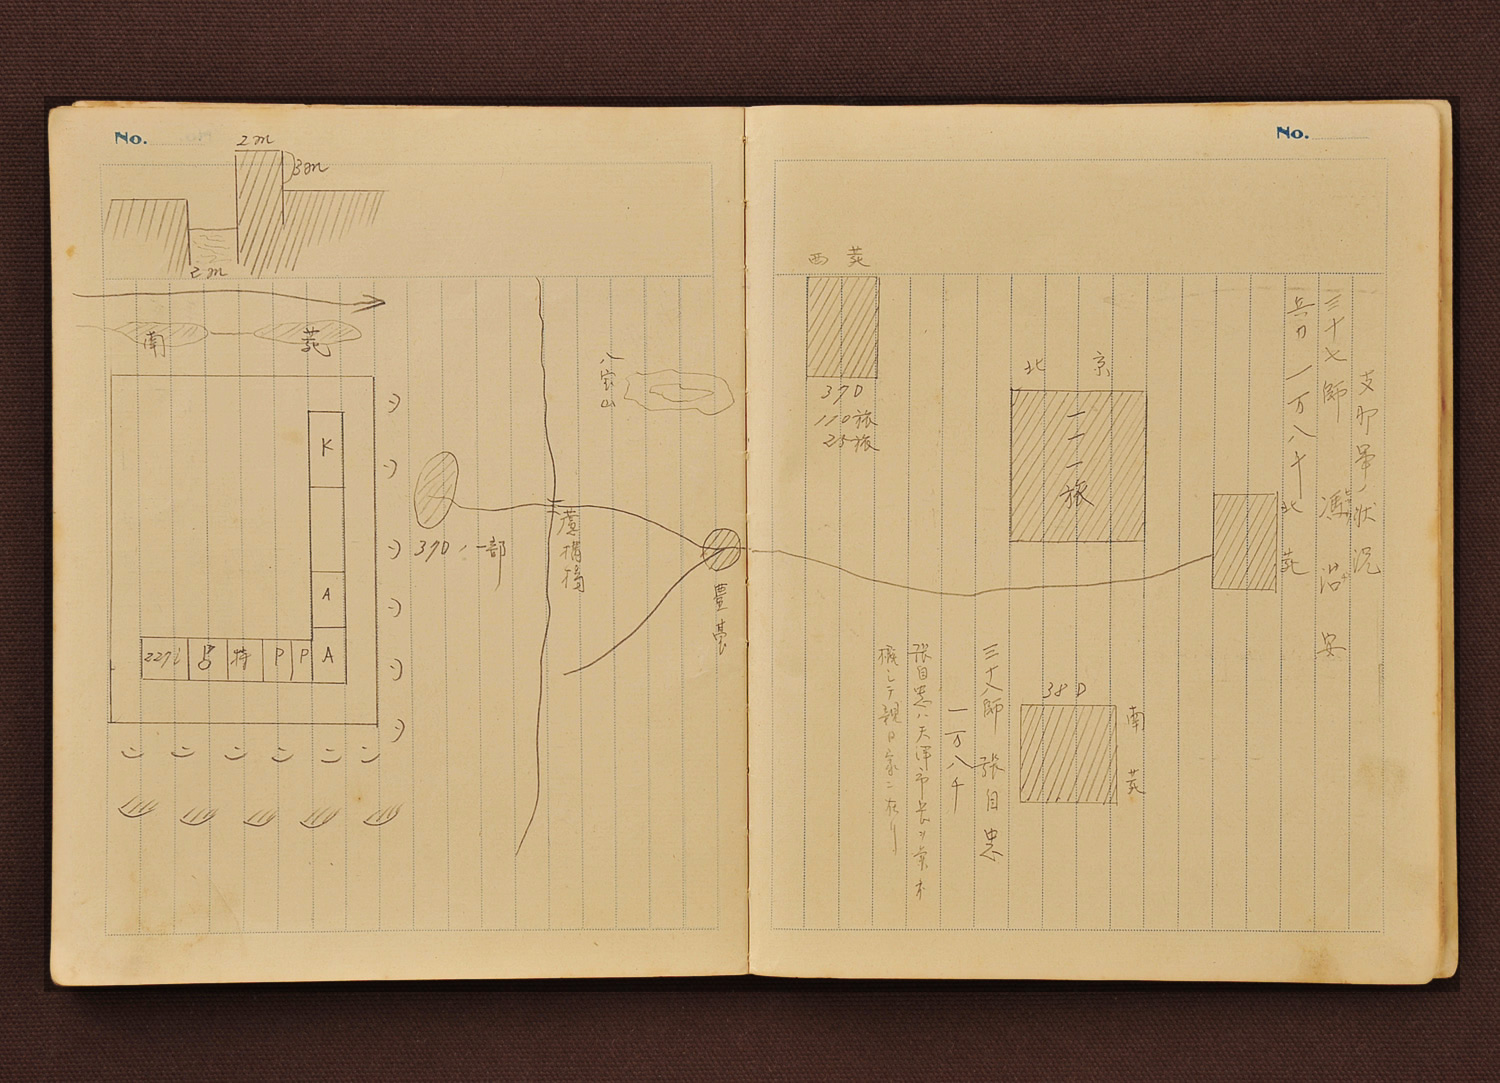 No.
2m
3m
2m
南苑
K
A
A
P
P
特
227i
八宝山
37Dノ一部
蘆構橋
豊臺
No.
支那軍ノ状況
三十七師 馮治安
兵力 一万八千
北苑
北京
一一一旅
西苑
37D
110旅
25旅
38D
南苑
三十八師 張自忠
一万八千
張自忠ハ天津市長ヲ兼ネ
機シテ親日家ニ在リ